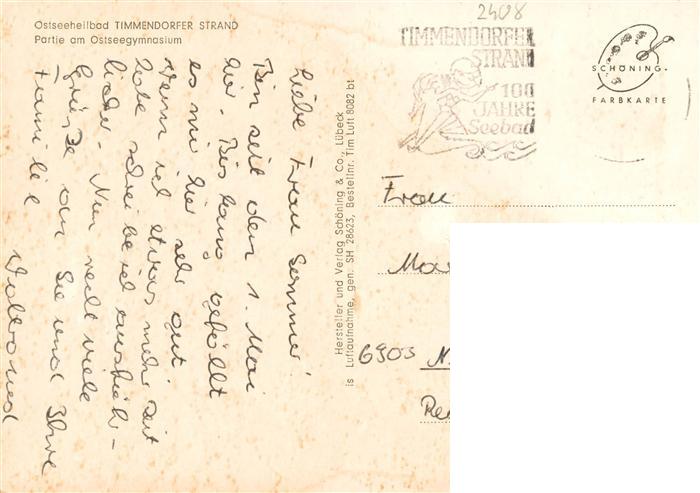 Ostseeheilbad TIMMENDORFER STRAND
Partie am Ostseegymnasium
Liebe Frau Sommer!
Bin seit den 1. Mai
hier. Bis lang gefällt
es mir hier sehr gut.
Wenn ich etwas mehr Zeit
habe schreibe ich ausführ-
licher. Nun recht viele
Grüße an Sie und Ihre
Familie
Hersteller und Verlag Schöning & Co., Lübeck
is Luftaufnahme, gen. SH 28623, Bestellnr. Tim Luft 8082 bt
2408
TIMMENDORFER
STRAND
100
JAHRE
Seebad
SCHÖNING
FARBKARTE
Frau
Mar
6903 N
Re